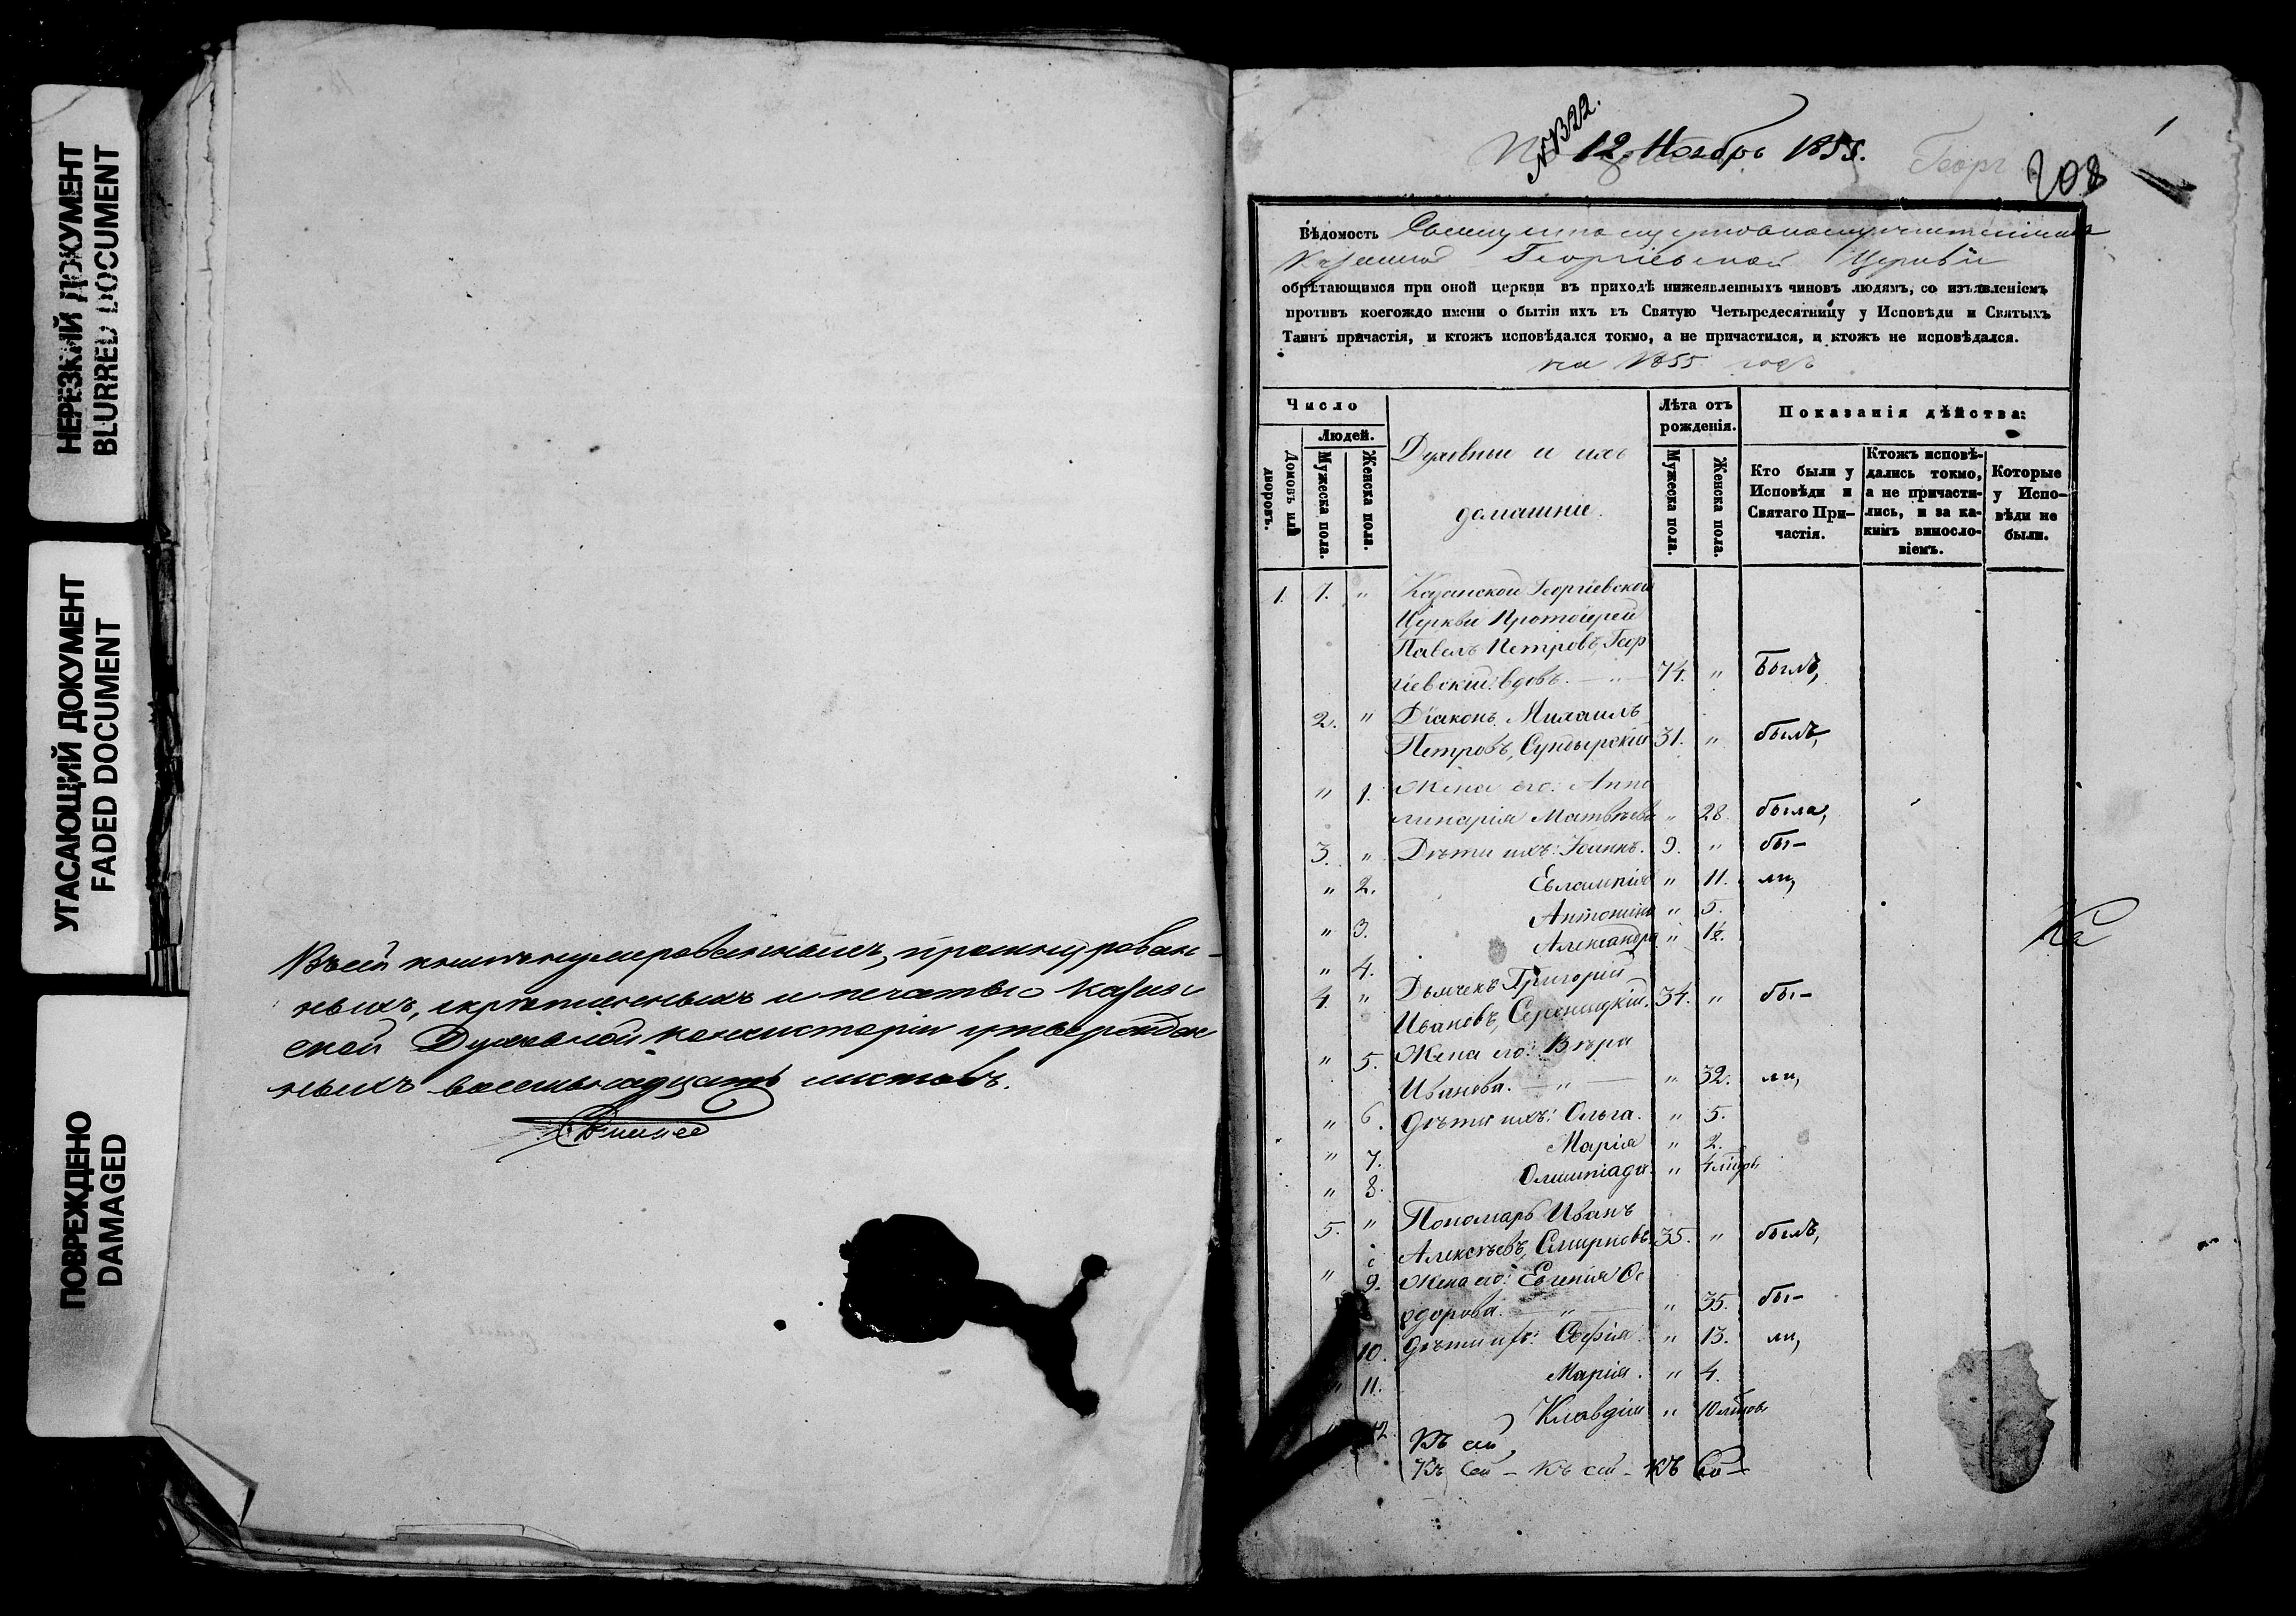 НЕРЕЗКИЙ ДОКУМЕНТ
BLURRED DOCUMENT
УГАСАЮЩИЙ ДОКУМЕНТ
FADED DOCUMENT
ПОВРЕЖДЕНО
DAMAGED
Въ сей книгѣ нумерованныхъ, прошнурован-
ныхъ, скрѣпленныхъ и печатью Казан
ской Духовной консисторіи утвержден
ныхъ восемнадцать листовъ.
12. Ноябрь 1855.
Георг
208
Вѣдомость
Георгіевской Церкви
обрѣтающимся при оной церкви въ приходѣ нижеявленныхъ чиновъ людямъ, со изъявленіемъ
противъ коегождо имени о бытіи ихъ въ Святую Четыредесятницу у Исповѣди и Святыхъ
Таинъ причастія, и ктожъ исповѣдался токмо, а не причастился, и ктожъ не исповѣдался.
на 1855 годъ
Число
Людей.
Домовъ или дворовъ.
Мужеска пола.
Женска пола.
Духовные и ихъ
домашніе.
Лѣта отъ рожденія.
Мужеска пола.
Женска пола.
Показанія дѣйства:
Кто были у Исповѣди и Святаго При-частія.
Ктожъ исповѣ-дались токмо, а не причасти-лись, и за ка-кимъ винносло-віемъ.
Которые у Испо-вѣди не были.
1. 1. " Казанской Георгіевской
Церкви Протоіерей
Павелъ Петровъ, Геор
гіевскій вдовъ. — " 74. " Былъ,
2. " Діаконъ Михаилъ
Петровъ, Сундырскій 31. " былъ,
" 1. Жена его: Аппо
линарія Матвѣева " 28. была,
3. " Дѣти ихъ: Іоаннъ. 9. " бы-
" 2. Евлампія " 11. ли,
" 3. Антонина " 5.
" 4. Александра " 1½.
4. " Дьячекъ Григорій
Ивановъ, 34. " бы-
" 5. Жена его: Вѣра
Иванова. — " — " 32. ли,
" 6. Дѣти ихъ: Ольга. " 5.
" 7. Марія " 2.
" 8. Олимпіада. " 4
5. " Пономарь Иванъ
Алексѣевъ, Смирновъ 35. " былъ,
" 9. Жена его: Евгенія Ѳе
одорова. — " — " 35. бы-
10. Дѣти ихъ: Софія " 13. ли,
" 11. Марія. " 4.
12. Клавдія " 10
Къ сей
Къ сей - Къ сей - Къ
Ка